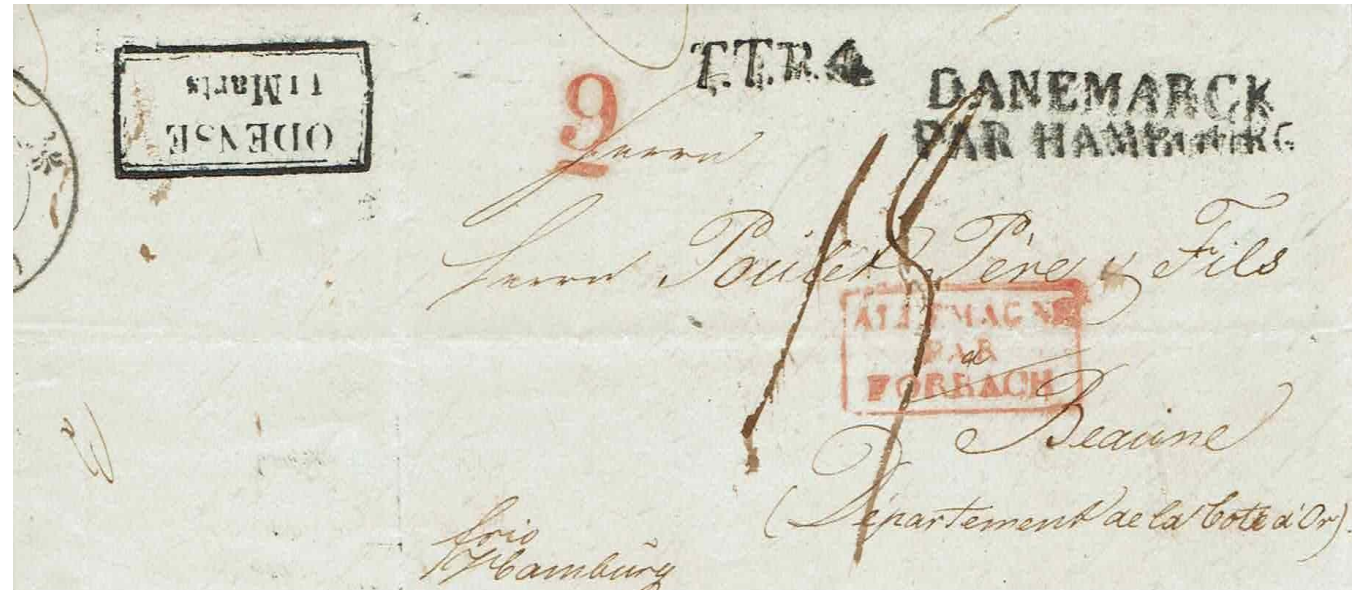 ODENSE
11 Marts
9
T.T.R.4.
DANEMARCK
PAR HAMBOURG
18
Herrn
Herrn Poulet Père & Fils
ALLEMAGNE
PAR
FORBACH
à
Beaune
(Département de la Cote d'Or).
Hamburg